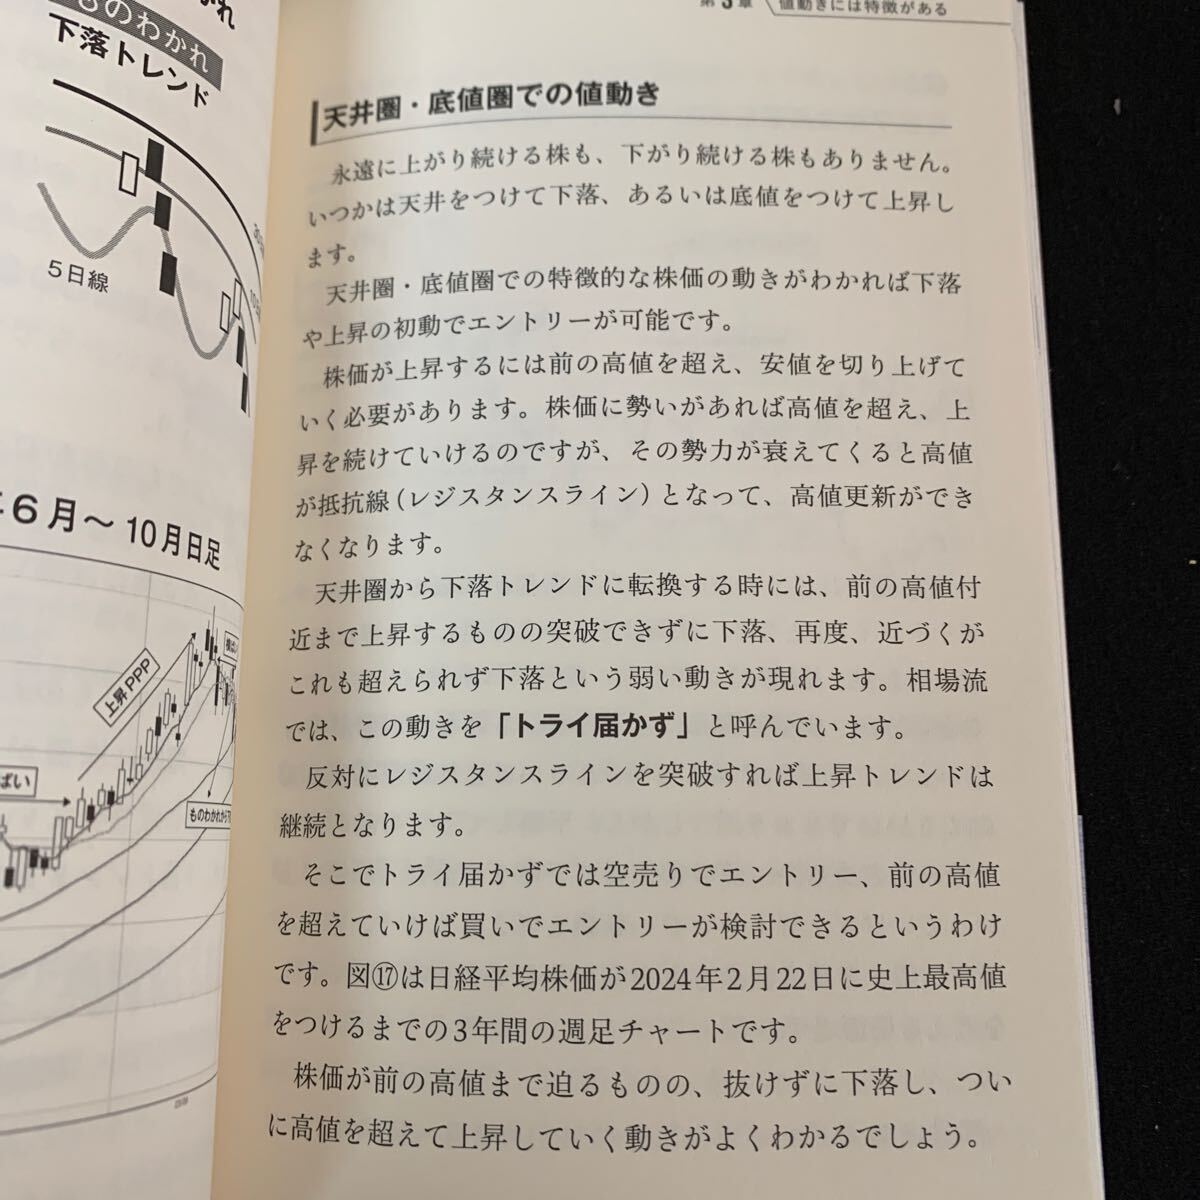 ものわかれ
下落トレンド
5日線
6月～10月日足
上昇PPP
ばい
第3章
値動きには特徴がある
天井圏・底値圏での値動き
永遠に上がり続ける株も、下がり続ける株もありません。
いつかは天井をつけて下落、あるいは底値をつけて上昇し
ます。
天井圏・底値圏での特徴的な株価の動きがわかれば下落
や上昇の初動でエントリーが可能です。
株価が上昇するには前の高値を超え、安値を切り上げて
いく必要があります。株価に勢いがあれば高値を超え、上
昇を続けていけるのですが、その勢力が衰えてくると高値
が抵抗線（レジスタンスライン）となって、高値更新ができ
なくなります。
天井圏から下落トレンドに転換する時には、前の高値付
近まで上昇するものの突破できずに下落、再度、近づくが
これも超えられず下落という弱い動きが現れます。相場流
では、この動きを「トライ届かず」と呼んでいます。
反対にレジスタンスラインを突破すれば上昇トレンドは
継続となります。
そこでトライ届かずでは空売りでエントリー、前の高値
を超えていけば買いでエントリーが検討できるというわけ
です。図⑰は日経平均株価が2024年2月22日に史上最高値
をつけるまでの3年間の週足チャートです。
株価が前の高値まで迫るものの、抜けずに下落し、つい
に高値を超えて上昇していく動きがよくわかるでしょう。